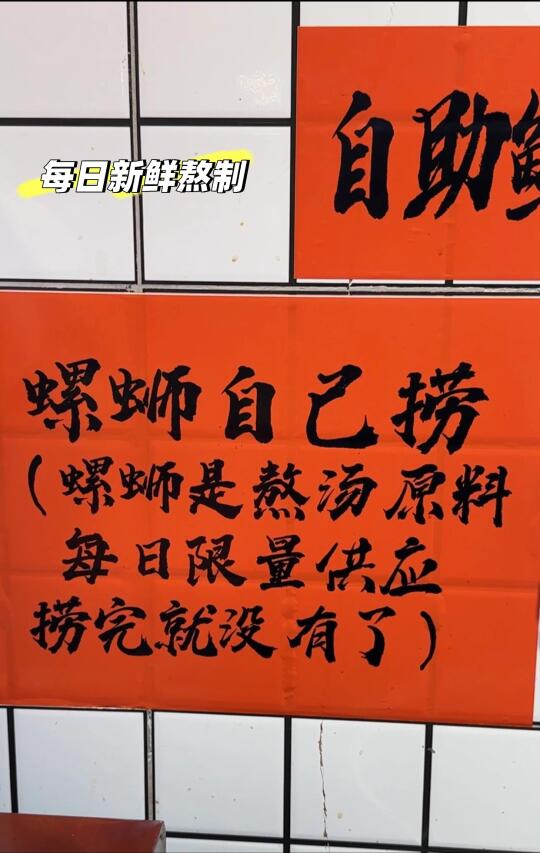 自助
每日新鲜熬制
螺蛳自己捞
（螺蛳是熬汤原料
每日限量供应
捞完就没有了）